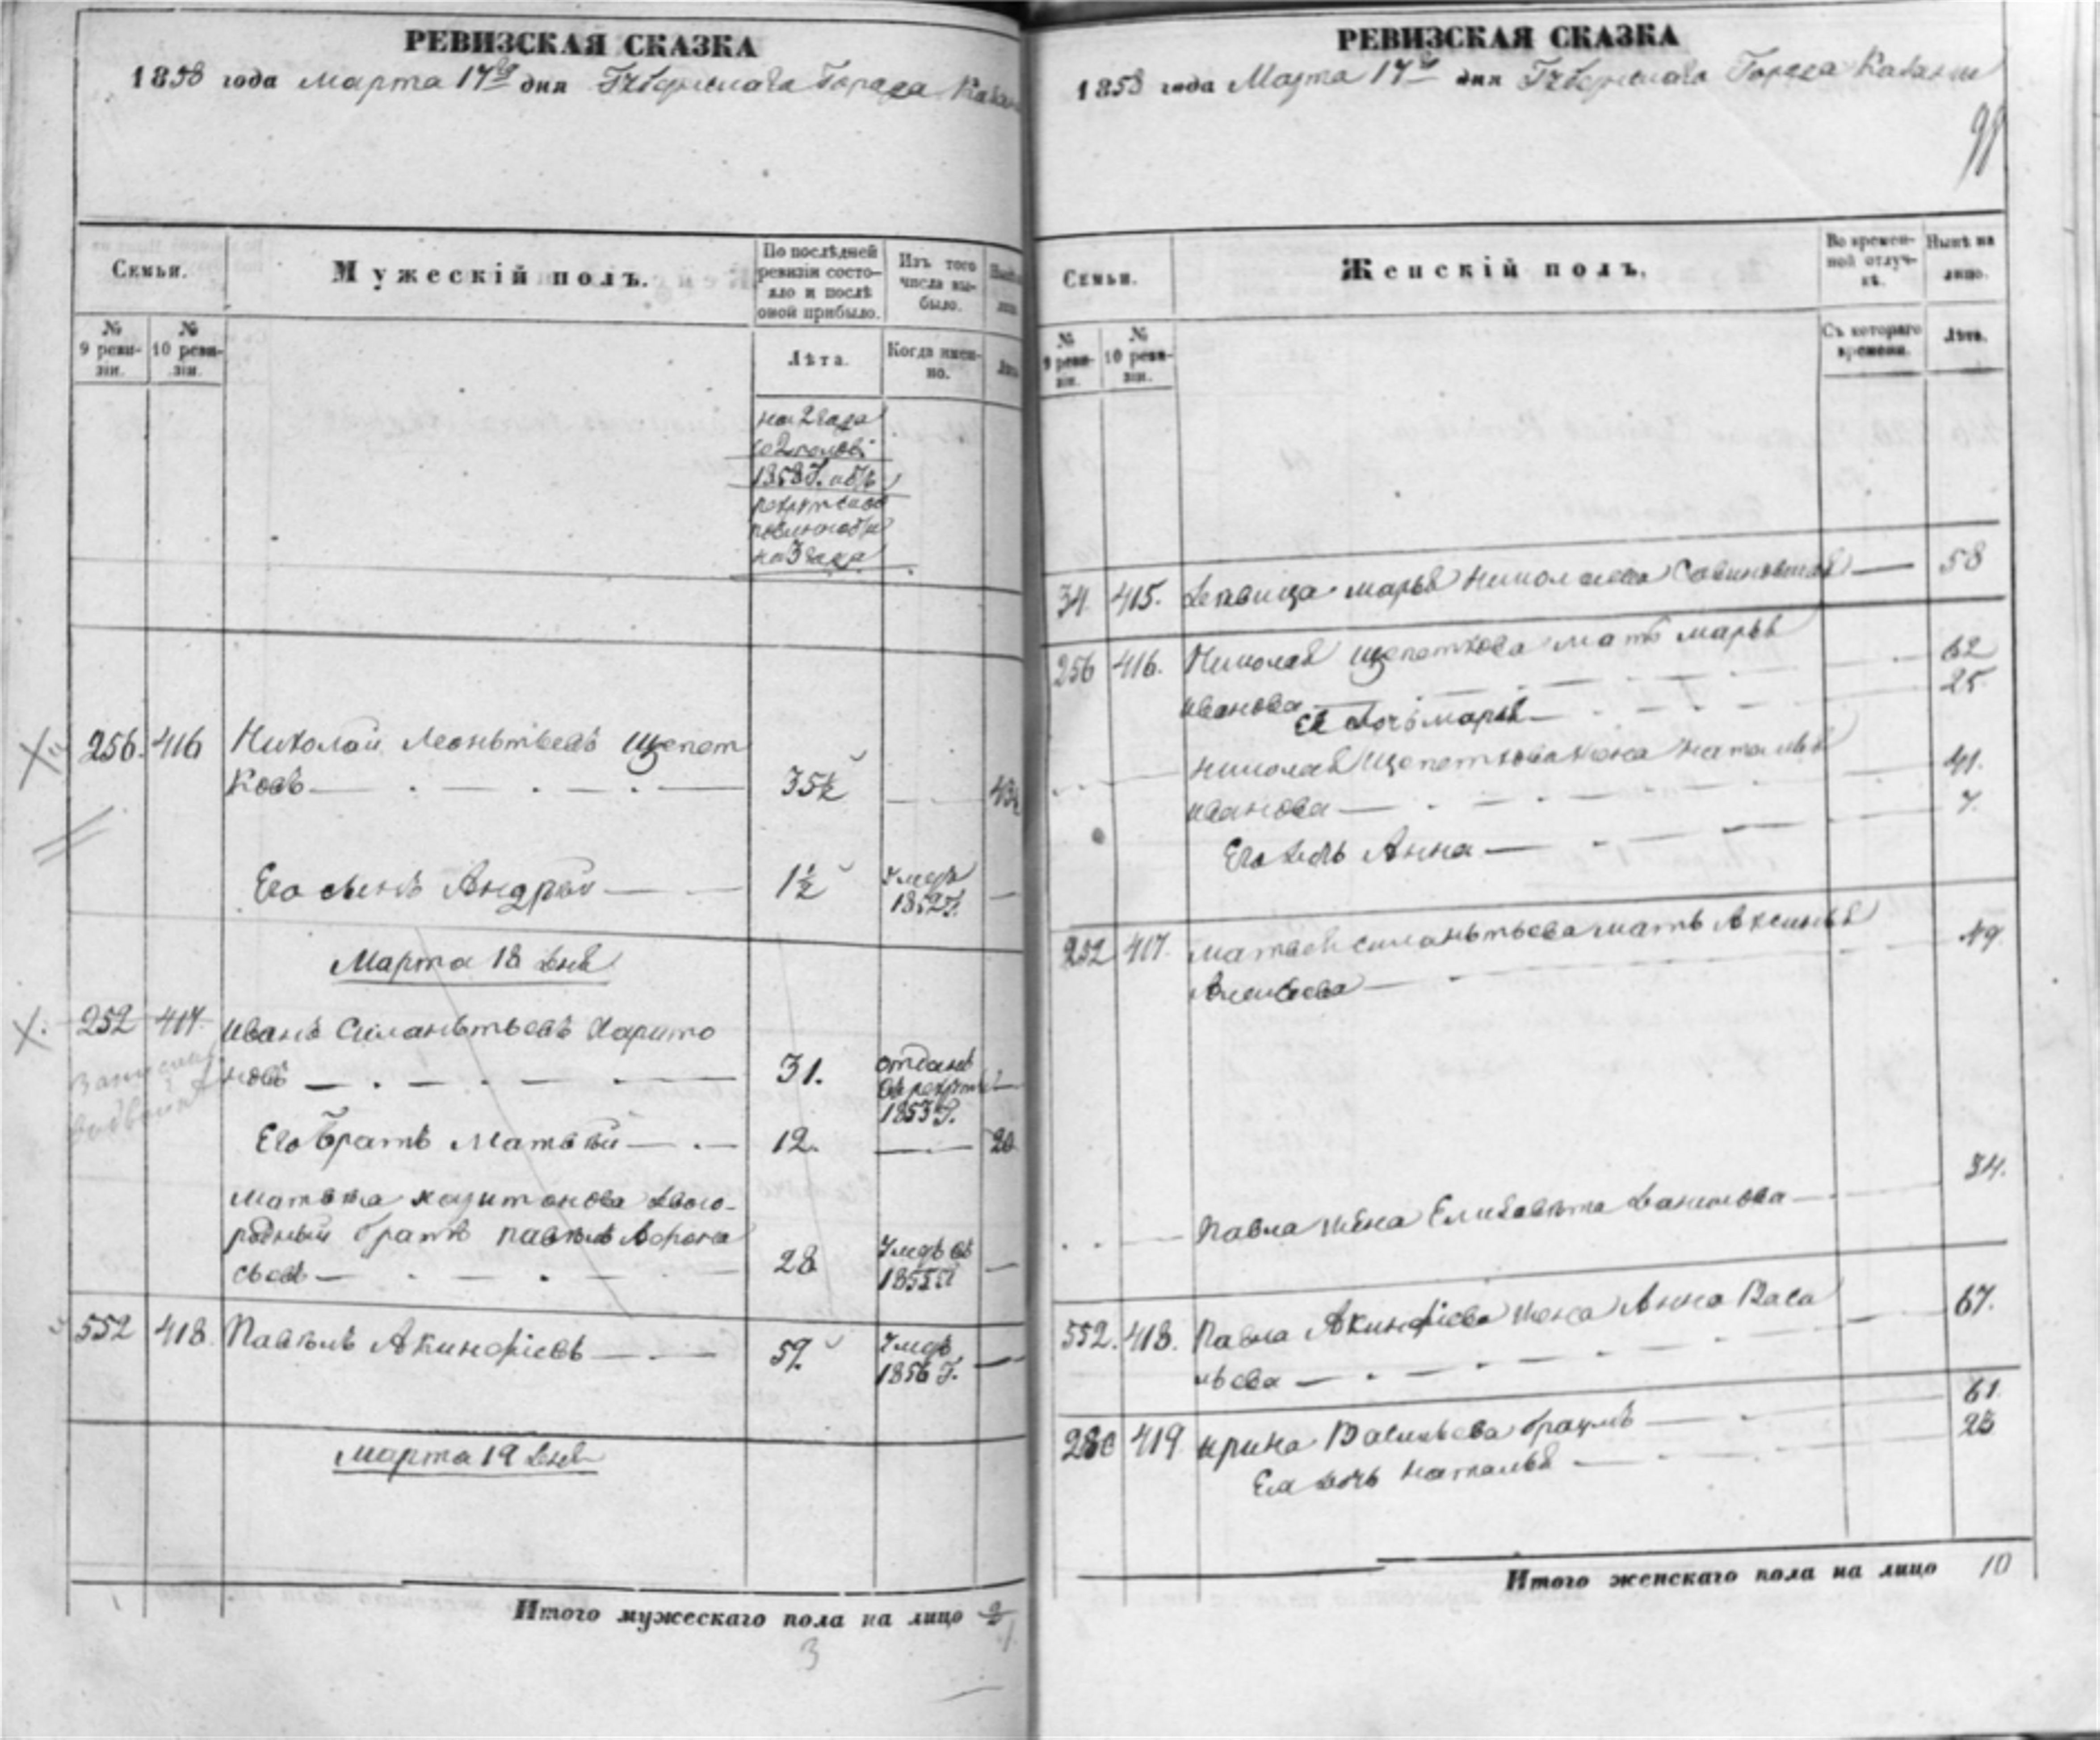 РЕВИЗСКАЯ СКАЗКА
1858 года Марта 17го дня Губернскаго Города
Семьи.
Мужескій полъ.
По послѣдней ревизіи состояло и послѣ оной прибыло.
Изъ того числа выбыло.
№ 9 ревизіи.
№ 10 ревизіи.
Лѣта.
Когда именно.
на 2 года
1858 Г.
на 3 года
256. 416 Николай Леонтьевъ Щепет
ковъ 35½
Его сынъ Андрей 1½ Умеръ 1852 Г.
Марта 18 дня
252 417. Иванъ Силантьевъ Харито
новъ 31. отданъ въ рекруты 1853 Г.
Его братъ Матвѣй 12. 20
Матвѣя Харитонова двою-
родный братъ Павелъ Афона
сьевъ 28 Умеръ въ 1855
552 418. Павелъ Акинфіевъ 59. Умеръ 1856 Г.
Марта 19 дня
Итого мужескаго пола на лицо
3
РЕВИЗСКАЯ СКАЗКА
1858 года Марта 17го дня Губернскаго Города Казани
Семьи.
Женскій полъ.
Во временной отлучкѣ.
Нынѣ на лицо.
№ 9 ревизіи.
№ 10 ревизіи.
Съ котораго времени.
Лѣта.
34. 415. Девица Марья Николаева 58
256 416. Николая Щепеткова мать Марья
Иванова 62
Ея дочь Марья 25
Николая Щепеткова жена Наталья
Иванова 41.
Его дочь Анна 7.
252 417. Матвея Силантьева мать Аксинья
Алексеева 49.
Павла жена Елизавета Данилова 34.
552. 418. Павла Акинфіева жена Анна Васи
льева 67.
419 Ирина Васильева 61.
Ея дочь Наталья
Итого женскаго пола на лицо 10